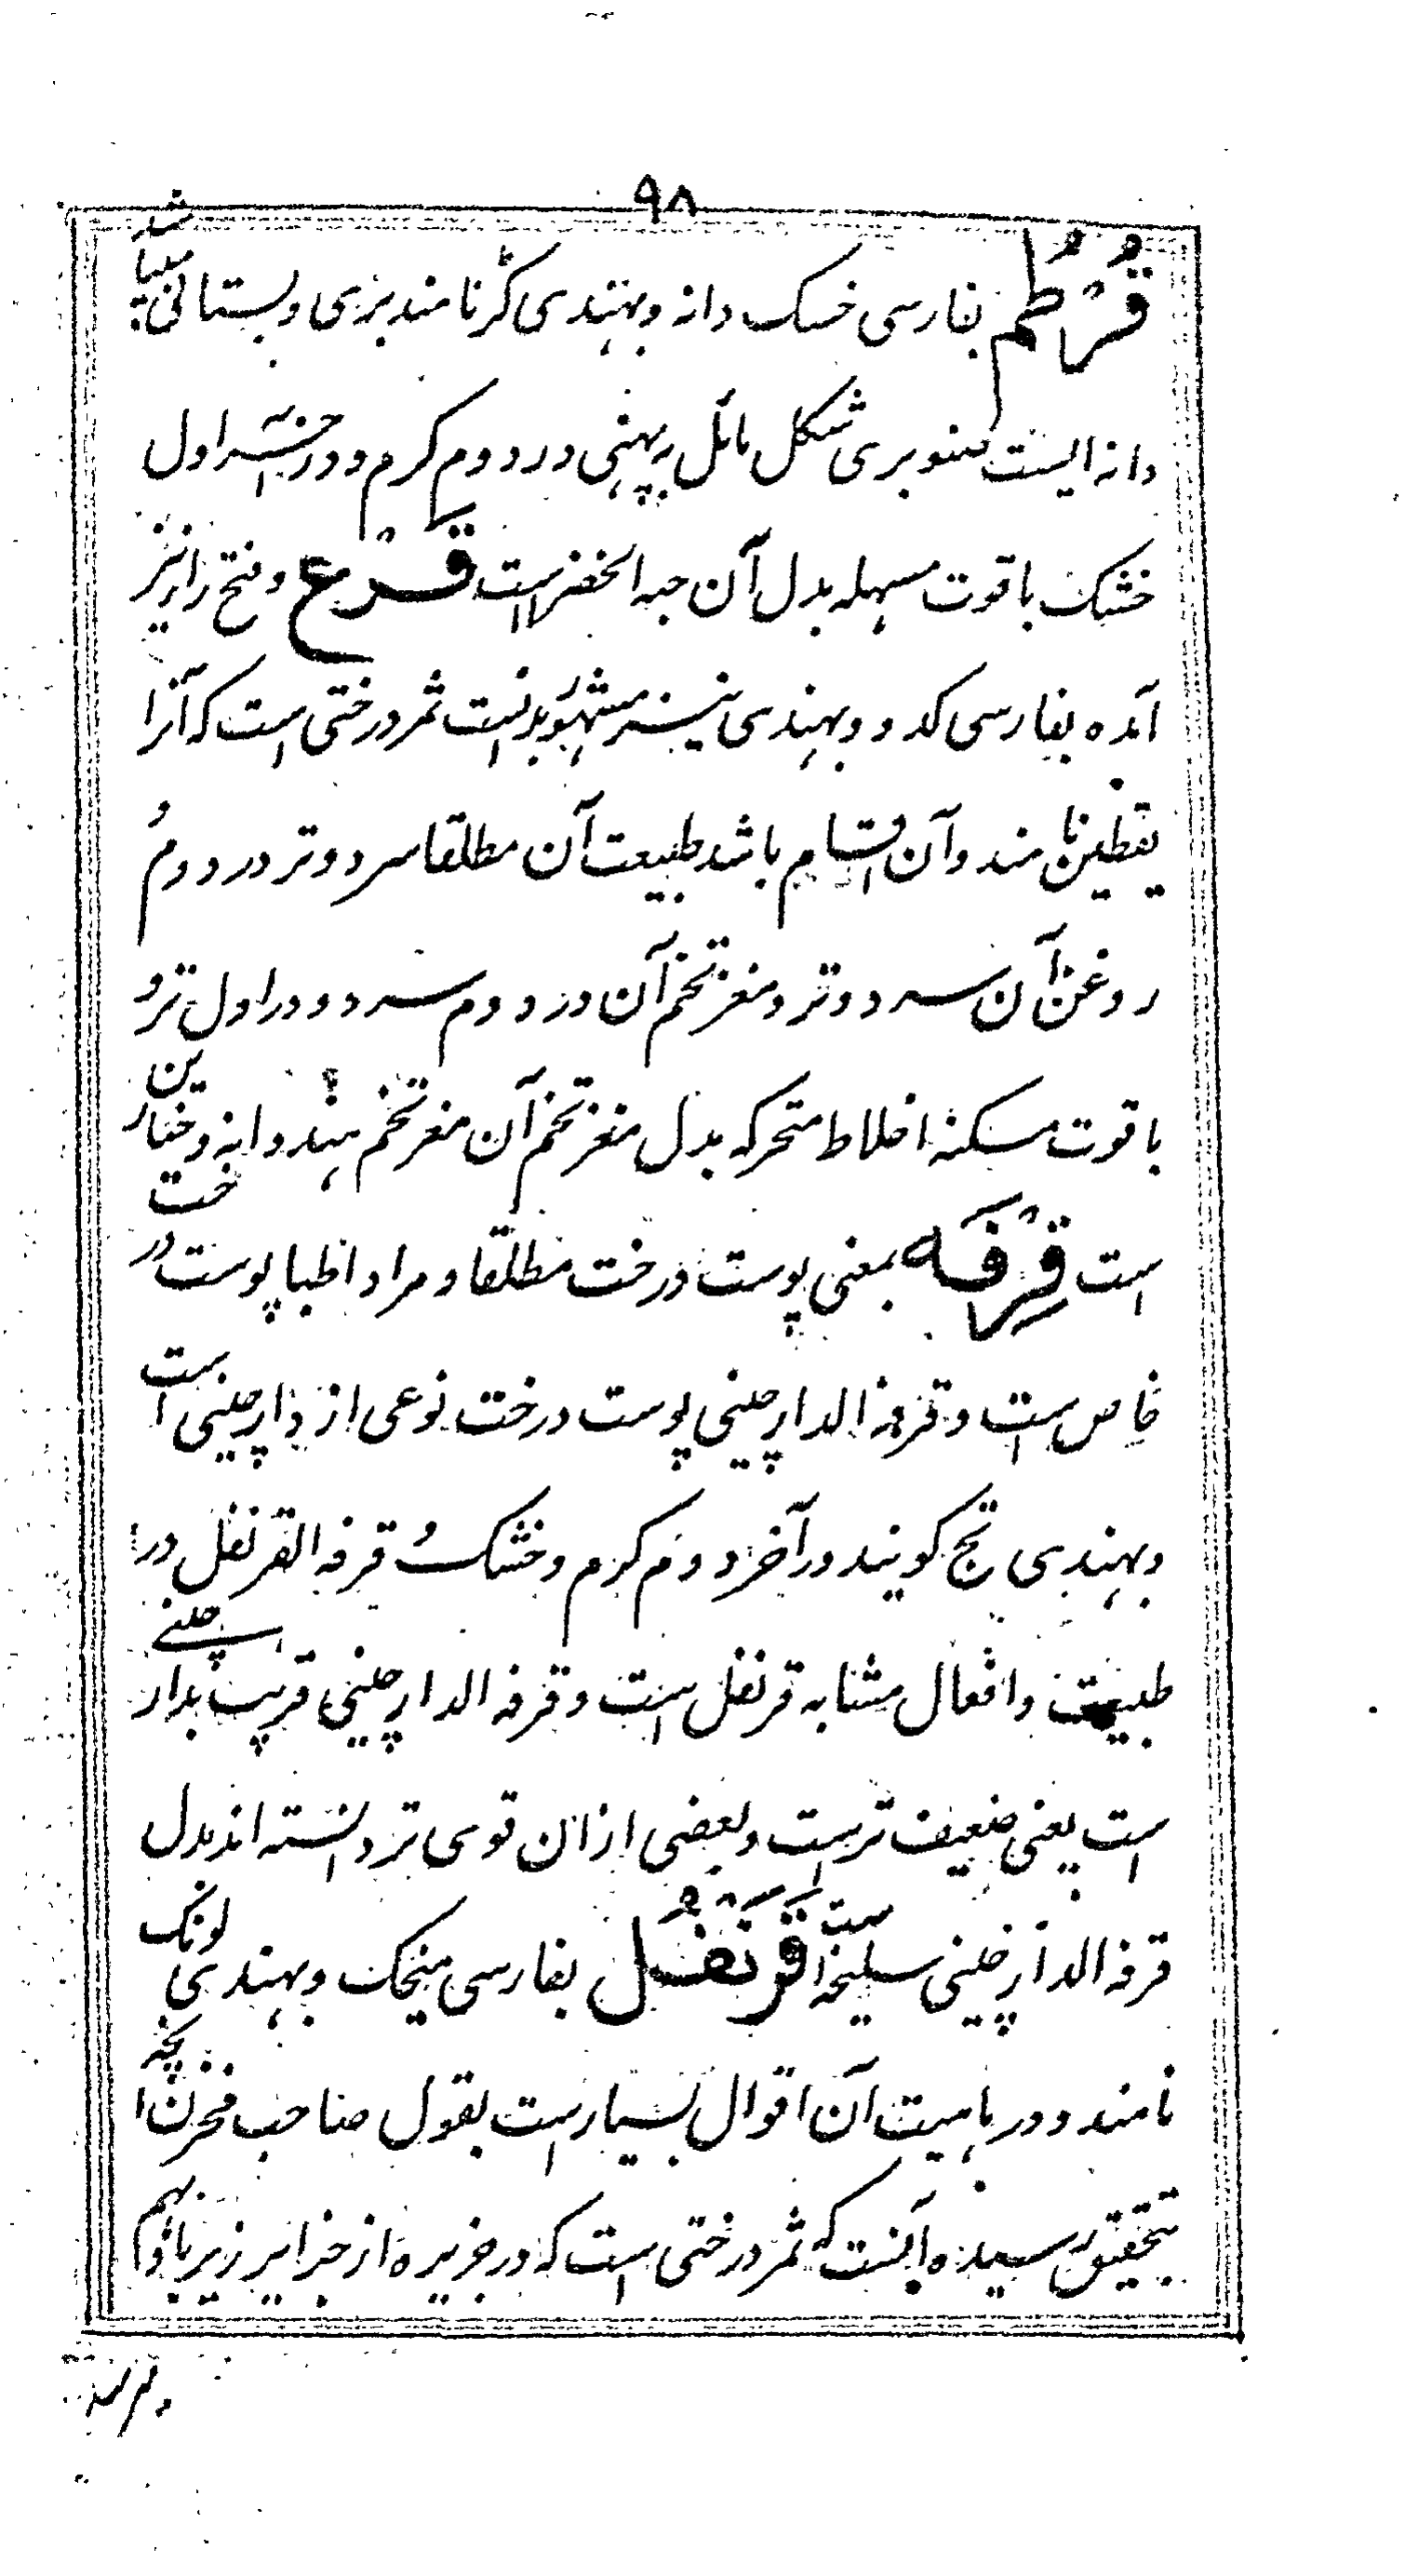 ٩٨
قُرطُم بفارسی خسک دانه و بهندی کڑ نامند بری و بستانی میباشد
دانه ایست صنوبری شکل مائل به پهنی در دوم گرم و در آخر اول
خشک با قوت مسهله بدل آن حبه الخضرا است قَرْع و فتح را نیز
آمده بفارسی کدو و بهندی نیز مشهور بدنست ثمر درختی است که آنرا
یقطین نامند و آن اقسام باشد طبیعت آن مطلقا سرد و تر در دوم و
روغن آن سرد و تر و مغز تخم آن در دوم سرد و در اول تر و
با قوت مسکنه اخلاط متحرکه بدل مغز تخم آن مغز تخم هندوانه و خیارین
است قِرْفَه بمعنی پوست درخت مطلقا و مراد اطبا پوست درخت
خاص است و قرفه الدارچینی پوست درخت نوعی از دارچینی است
و بهندی تج گویند در آخر دوم گرم و خشک و قرفه القرنفل در
طبیعت و افعال مشابه قرنفل است و قرفه الدارچینی قریب بدارچینی
است یعنی ضعیف تر است و بعضی ازان قوی تر دانسته اند بدل
قرفه الدارچینی سلیخه است قَرَنْفُل بفارسی میخک و بهندی لونگ
نامند و در ماهیت آن اقوال بسیار است بقول صاحب مخزن آنچه
بتحقیق رسیده آنست که ثمر درختی است که در جزیره از جزایر زیرباد بهم